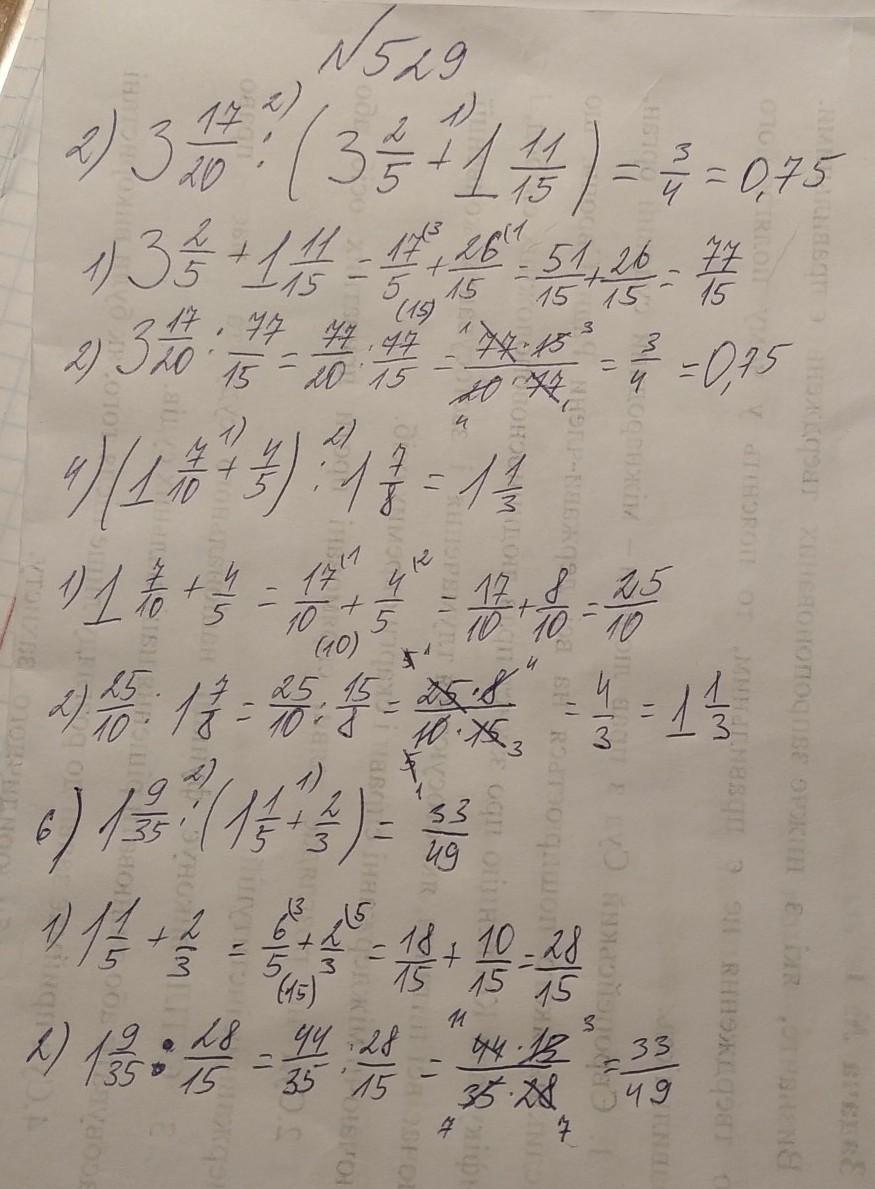 №529
2) 3 17/20 : (3 2/5 + 1 11/15) = 3/4 = 0,75
1) 3 2/5 + 1 11/15 = 17/5 + 26/15 = 51/15 + 26/15 = 77/15
2) 3 17/20 : 77/15 = 77/20 : 77/15 = 77·15/20·77 = 3/4 = 0,75
4) (1 7/10 + 4/5) : 1 7/8 = 1 1/3
1) 1 7/10 + 4/5 = 17/10 + 4/5 = 17/10 + 8/10 = 25/10
2) 25/10 : 1 7/8 = 25/10 : 15/8 = 25·8/10·15 = 4/3 = 1 1/3
6) 1 9/35 : (1 1/5 + 2/3) = 33/49
1) 1 1/5 + 2/3 = 6/5 + 2/3 = 18/15 + 10/15 = 28/15
2) 1 9/35 : 28/15 = 44/35 : 28/15 = 44·15/35·28 = 33/49